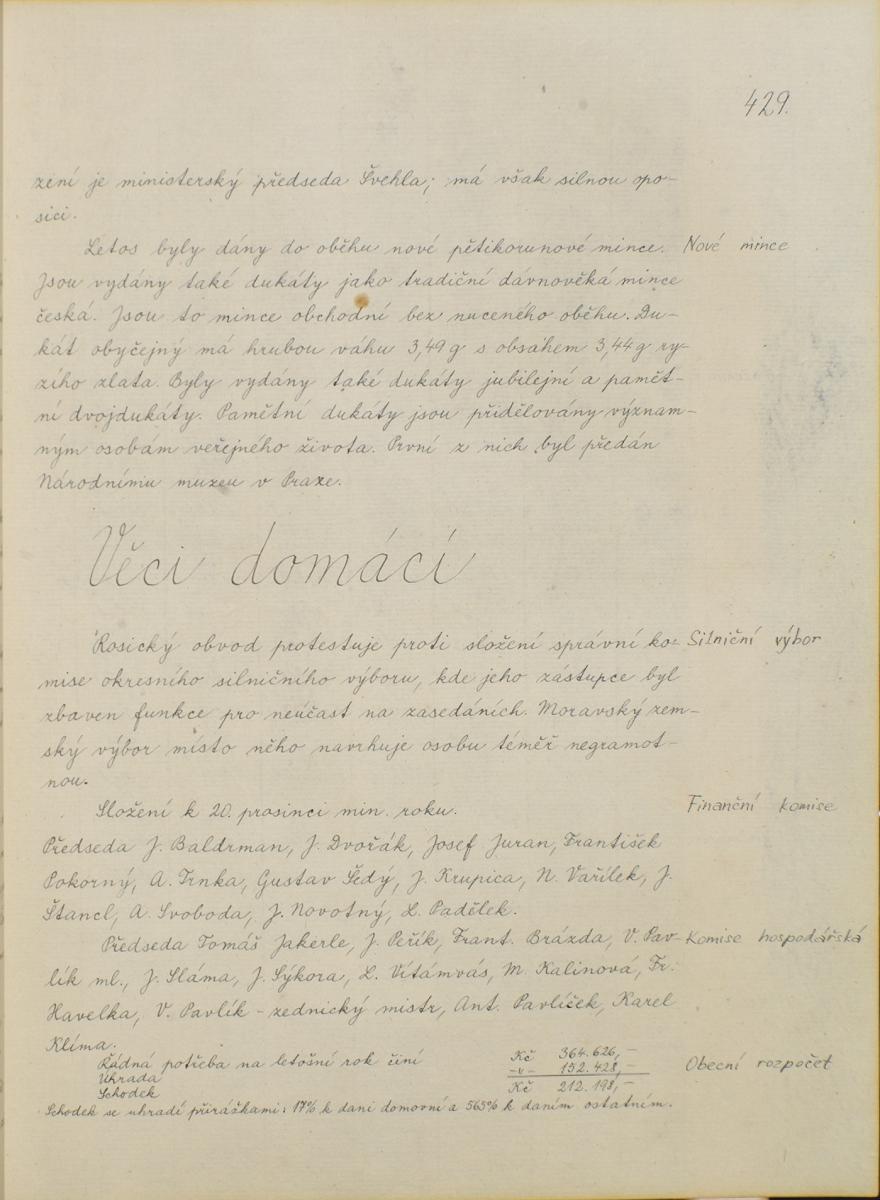 429.
zení je ministerský předseda Švehla; má však silnou opo-
sici.
Letos byly dány do oběhu nové pětikorunové mince. Nové mince
Jsou vydány také dukáty jako tradiční dávnověká mince
česká. Jsou to mince obchodní bez nuceného oběhu. Du-
kát obyčejný má hrubou váhu 3,49 g s obsahem 3,44 g ry-
zího zlata. Byly vydány také dukáty jubilejní a pamět-
ní dvojdukáty. Pamětní dukáty jsou přidělovány význam-
ným osobám veřejného života. První z nich byl předán
Národnímu muzeu v Praze.
Věci domácí
Rosický obvod protestuje proti složení správní ko- Silniční výbor
mise okresního silničního výboru, kde jeho zástupce byl
zbaven funkce pro neúčast na zasedáních. Moravský zem-
ský výbor místo něho navrhuje osobu téměř negramot-
nou.
Složení k 20. prosinci min. roku. Finanční komise
Předseda J. Baldrman, J. Dvořák, Josef Juran, František
Pokorný, A. Trnka, Gustav Šedý, J. Krupica, N. Vařílek, J.
Štancl, A. Svoboda, J. Novotný, L. Padělek.
Předseda Tomáš Jakerle, J. Peřík, Frant. Brázda, V. Pav- Komise hospodářská
lík ml., J. Sláma, J. Sýkora, L. Vítámvás, M. Kalinová, Fr.
Havelka, V. Pavlík - zednický mistr, Ant. Pavlíček, Karel
Klíma.
Řádná potřeba na letošní rok činí Kč 364.626,- Obecní rozpočet
Úhrada -„- 152.428,-
Schodek Kč 212.198,-
Schodek se uhradí přirážkami: 17% k dani domovní a 565% k daním ostatním.